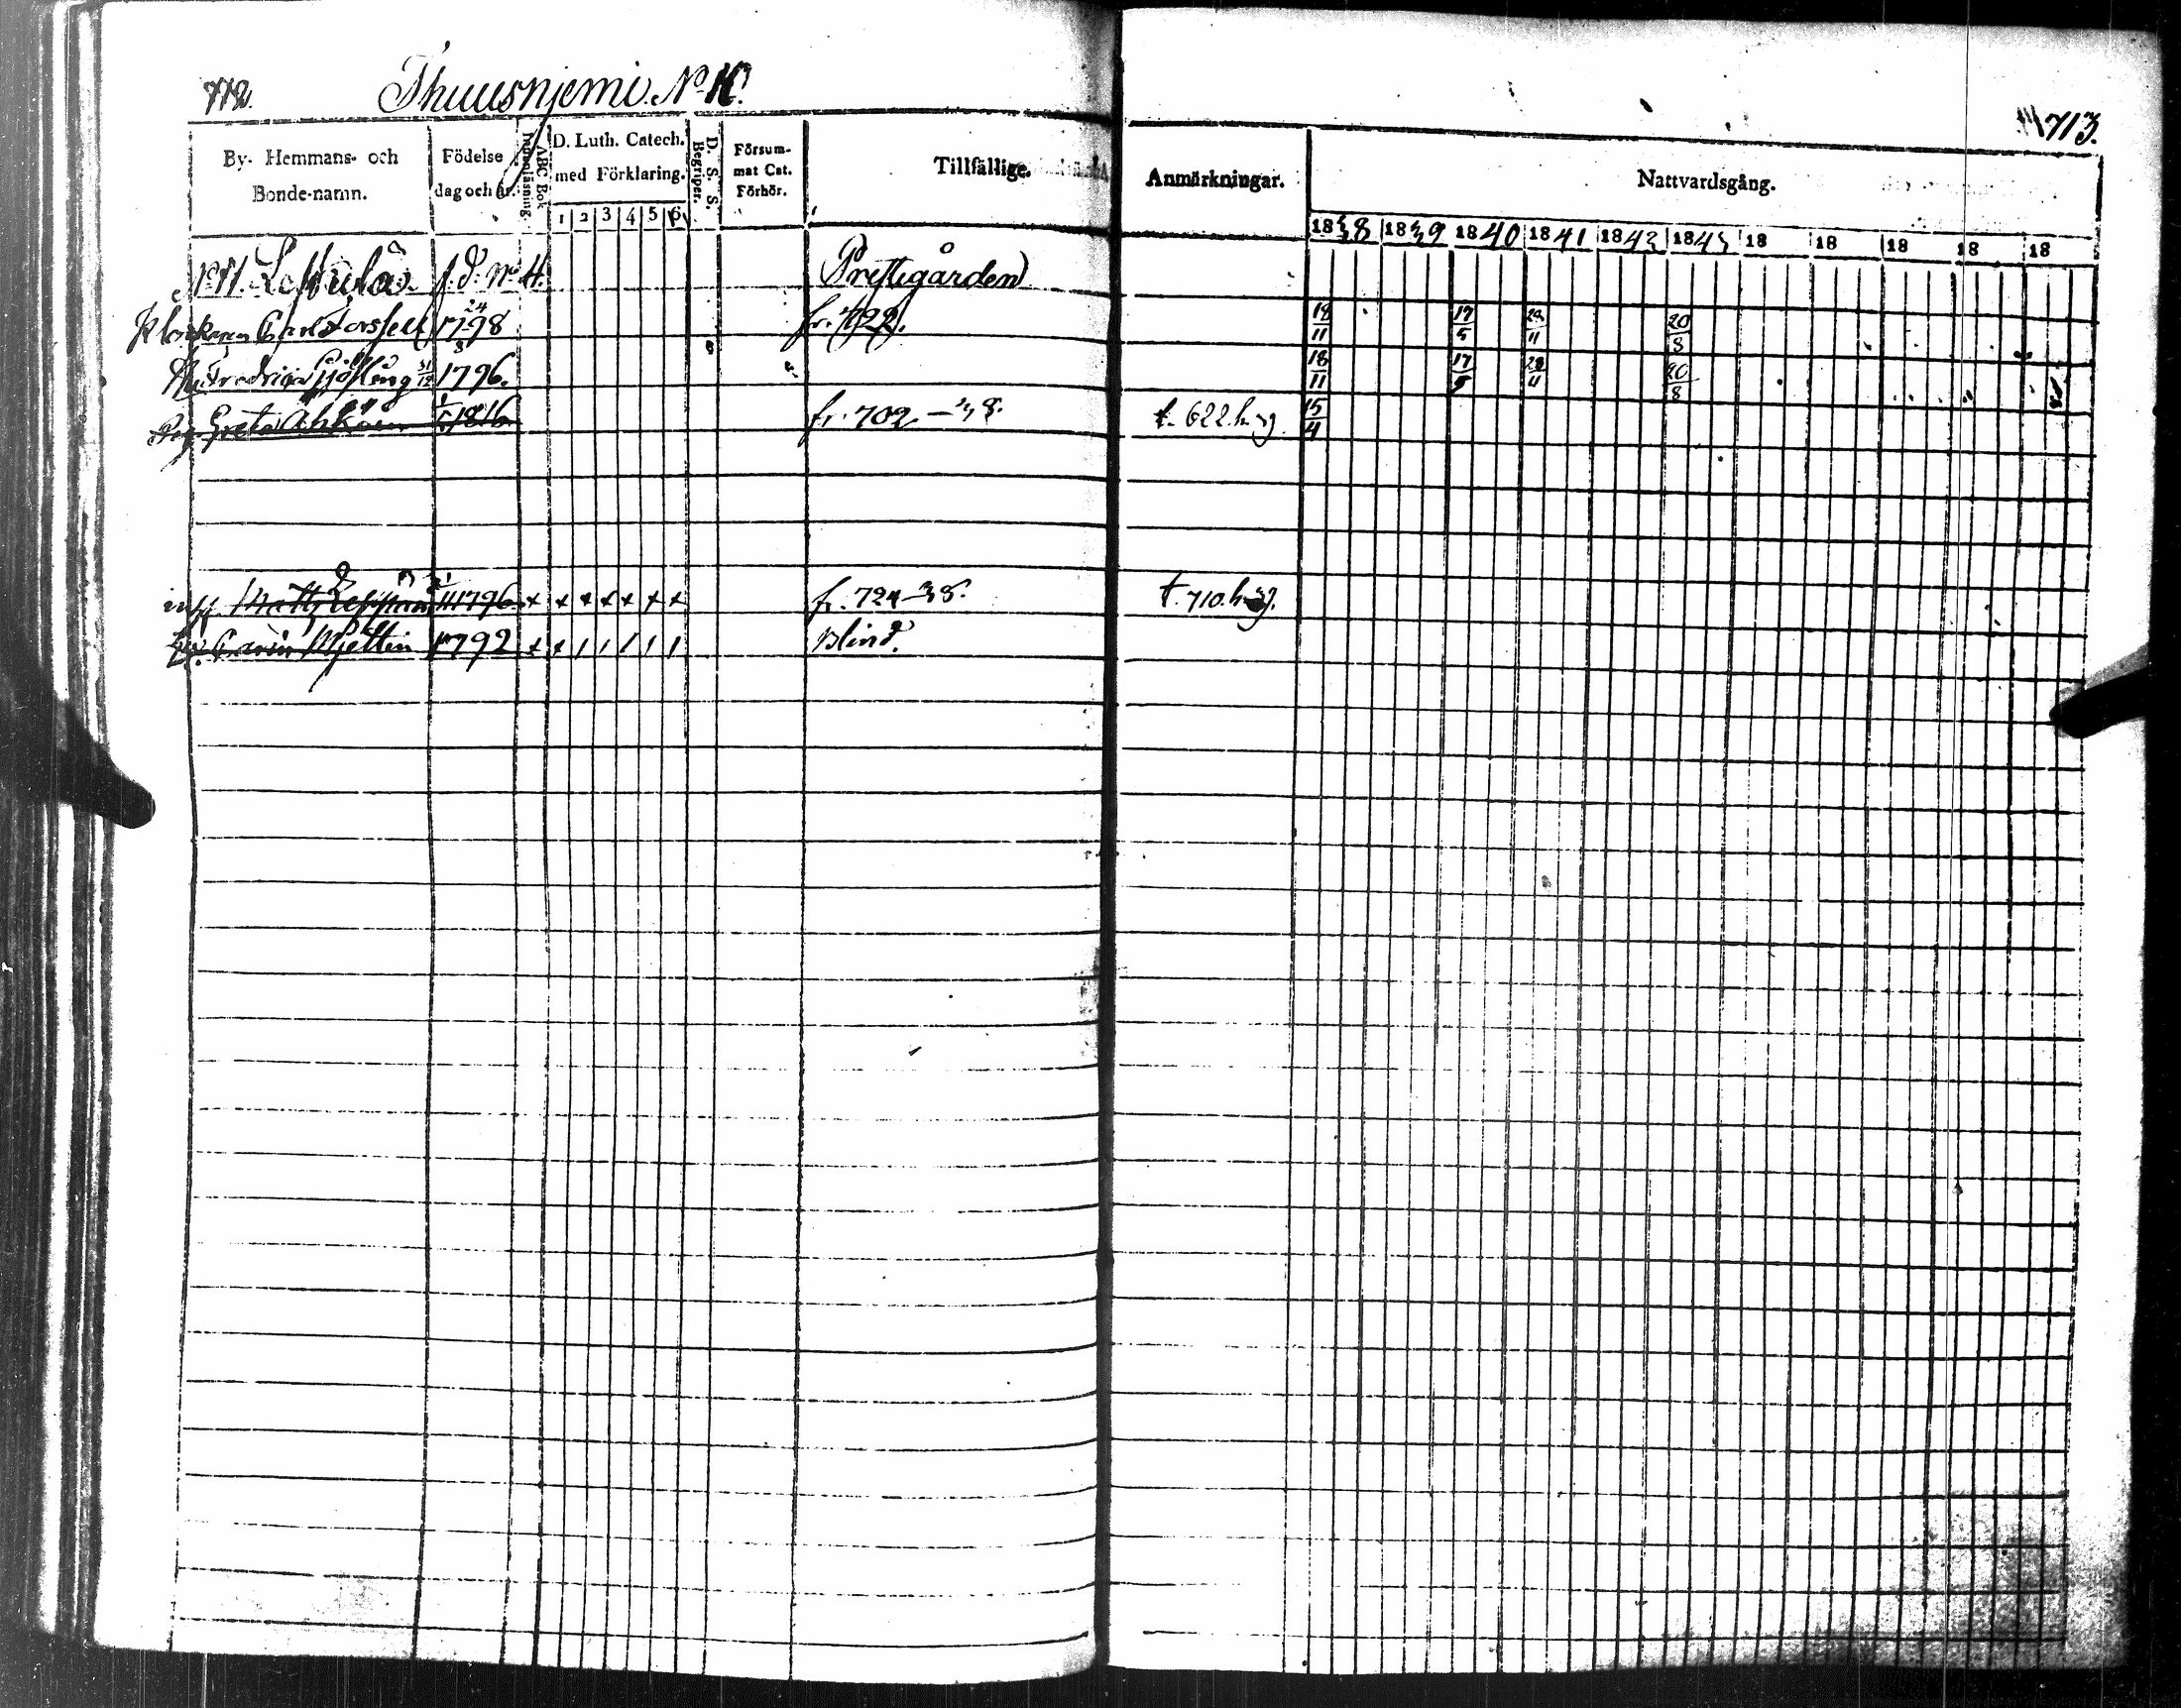 712.
Thuusnjemi. No 10.
713.
By- Hemmans- och Bonde-namn.
Födelse dag och år.
ABC Bok
Innanläsning.
D. Luth. Catech. med Förklaring.
1 2 3 4 5 6
D. S. S. Begriper.
Försummat Cat. Förhör.
Tillfällige.
Anmärkningar.
Nattvardsgång.
1838 1839 1840 1841 1843 1843 18 18 18 18 18
No 11. f. d. No 4. Prestegården
Klockaren Carl Forssell 24/8 1798 fr. 722. 18/11 17/5 20/8
Fredrica 31/12 1796. 18/11 17/5 20/8
Greta 1816 fr. 702 - 38. t. 622. h. 39. 15/4
Matts 1796 x x x x x x x fr. 724-38. t. 710. h. 39.
Carin Mjettin 1792 x x / / / / / Blind.